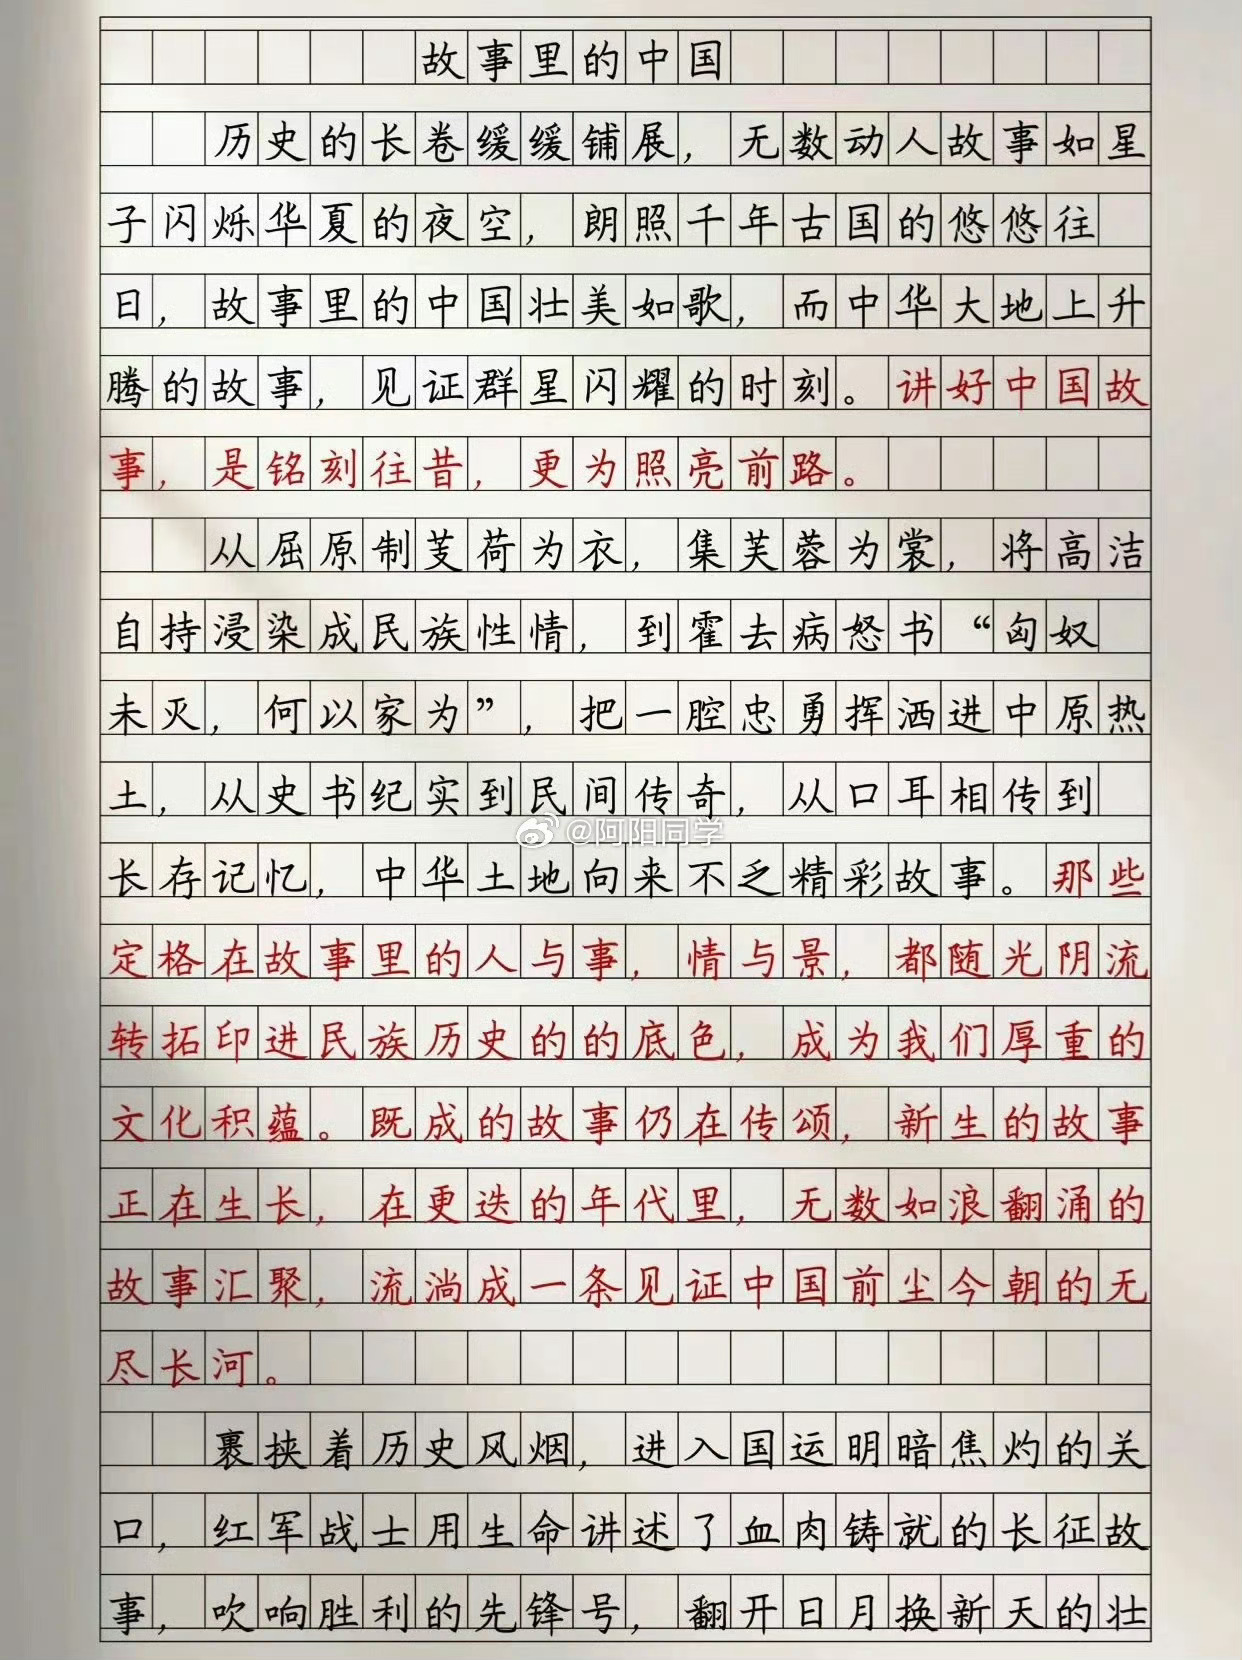 故事里的中国
历史的长卷缓缓铺展，无数动人故事如星
子闪烁华夏的夜空，朗照千年古国的悠悠往
日，故事里的中国壮美如歌，而中华大地上升
腾的故事，见证群星闪耀的时刻。讲好中国故
事，是铭刻往昔，更为照亮前路。
从屈原制芰荷为衣，集芙蓉为裳，将高洁
自持浸染成民族性情，到霍去病怒书“匈奴
未灭，何以家为”，把一腔忠勇挥洒进中原热
土，从史书纪实到民间传奇，从口耳相传到
@阿阳同学
长存记忆，中华土地向来不乏精彩故事。那些
定格在故事里的人与事，情与景，都随光阴流
转拓印进民族历史的的底色，成为我们厚重的
文化积蕴。既成的故事仍在传颂，新生的故事
正在生长，在更迭的年代里，无数如浪翻涌的
故事汇聚，流淌成一条见证中国前尘今朝的无
尽长河。
裹挟着历史风烟，进入国运明暗焦灼的关
口，红军战士用生命讲述了血肉铸就的长征故
事，吹响胜利的先锋号，翻开日月换新天的壮